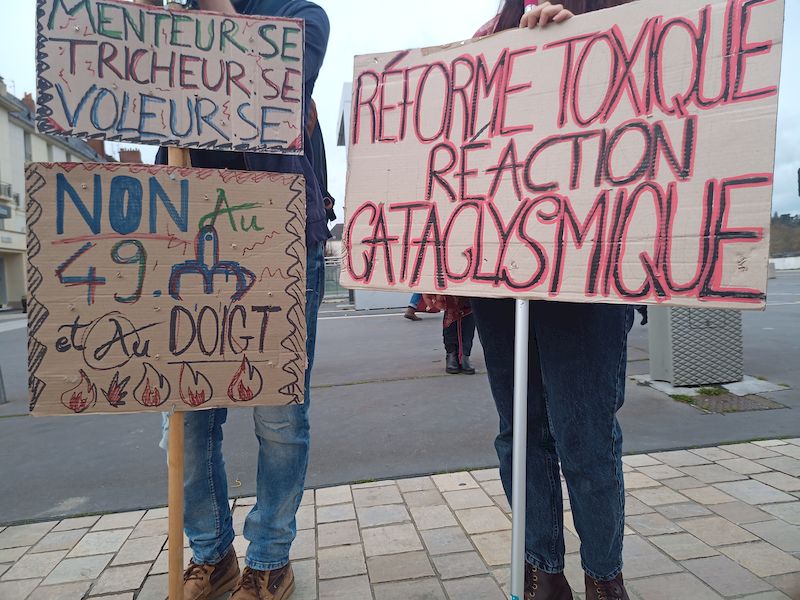 MENTEUR SE
TRICHEUR SE
VOLEUR SE
NON Au
49.
et Au DOIGT
RÉFORME TOXIQUE
RÉACTION
CATACLYSMIQUE